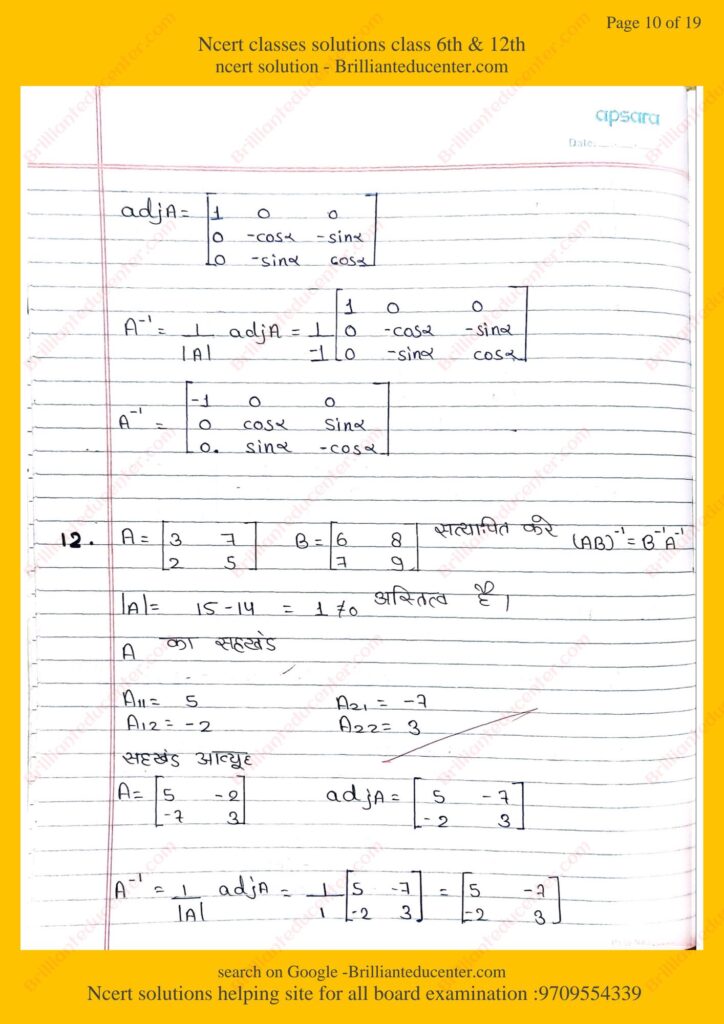 Page 10 of 19
Ncert classes solutions class 6th & 12th
ncert solution - Brillianteducenter.com
apsara
Date:
adjA= [1 0 0
0 -cosα -sinα
0 -sinα cosα]
A⁻¹ = 1/|A| adjA = 1/-1 [1 0 0
0 -cosα -sinα
0 -sinα cosα]
A⁻¹ = [-1 0 0
0 cosα sinα
0. sinα -cosα]
12. A= [3 7 B= [6 8 सत्यापित करे (AB)⁻¹=B⁻¹A⁻¹
2 5] 7 9]
|A|= 15-14 = 1≠0 अस्तित्व है।
A का सहखंड
A11= 5 A21 = -7
A12= -2 A22= 3
सहखंड आव्यूह
A= [5 -2 adjA= [5 -7
-7 3] -2 3]
A⁻¹ = 1/|A| adjA = 1/1 [5 -7 = [5 -7
-2 3] -2 3]
search on Google -Brillianteducenter.com
Ncert solutions helping site for all board examination :9709554339